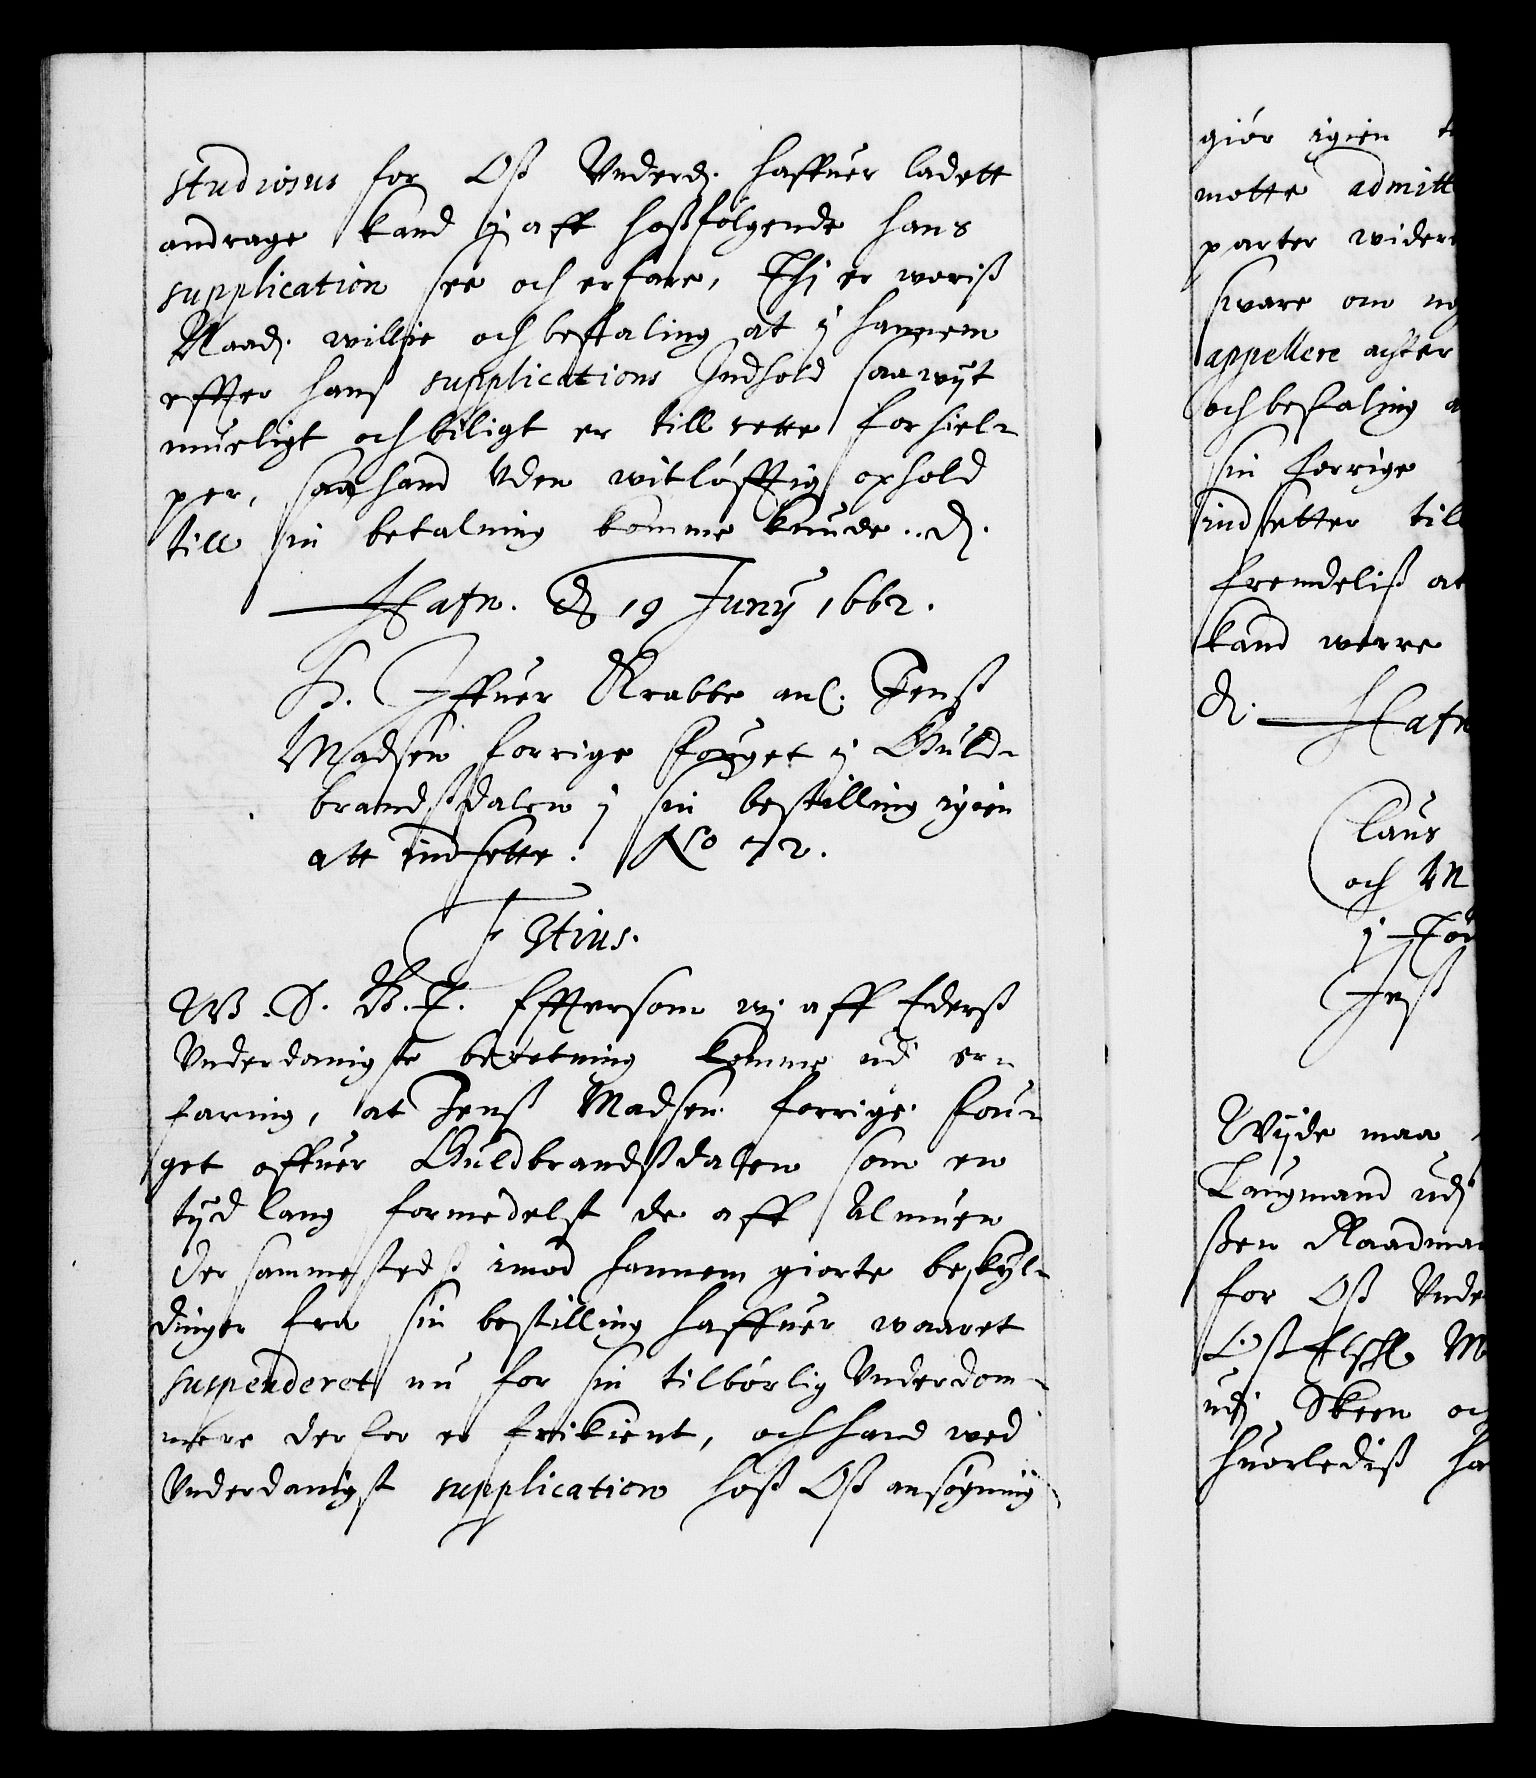 studiosus for Oß Vnderd. haffuer ladett
andrage kand j aff hoßfølgende hans
supplication see och erfare, Thj er woriß
Naad. willie och befaling at j hannem
effter hanß supplications Indhold saa wijt
mueligt och biligt er till rette forhiel-
per, saa hand Vden witløfftig ophold
till sin betalning komme kunde.. d.
Hafn. d 19 Junij 1662.
H. Iffuer Krabbe anl. Jenß
Madsen forrige Fouget j Guld-
brandßdalen j sin bestilling igien
att indsette. No 72.
F Stius.
W. S. G. T. Efftersom wj aff Ederß
Vnderdanigste beretning komme udj er-
faring, at Jenß Madsen forrige Fou-
get offuer Guldbrandßdalen som en
tijd lang formedelst de aff Almuen
der sammestedß imod hannem giorte beskyl-
dinger fra sin bestilling haffuer waaret
suspenderet nu for sin tilbørlig Vnderdom-
mere derfor er frikient, och hand med
Vnderdanigst supplication hoß Oß ansøgning
giør igien
motte admitt
parter widere
sware om
appellere achter
och befaling
sin forrige
indsetter till
fremdeliß at
kand werre
d. Hafn
Claus
och
j
Jeß
Wijde maa
Laugmand udj
ßen Raadman
for Oß Vnde
Oß Elschl
udj Skeen och
huorlediß ha